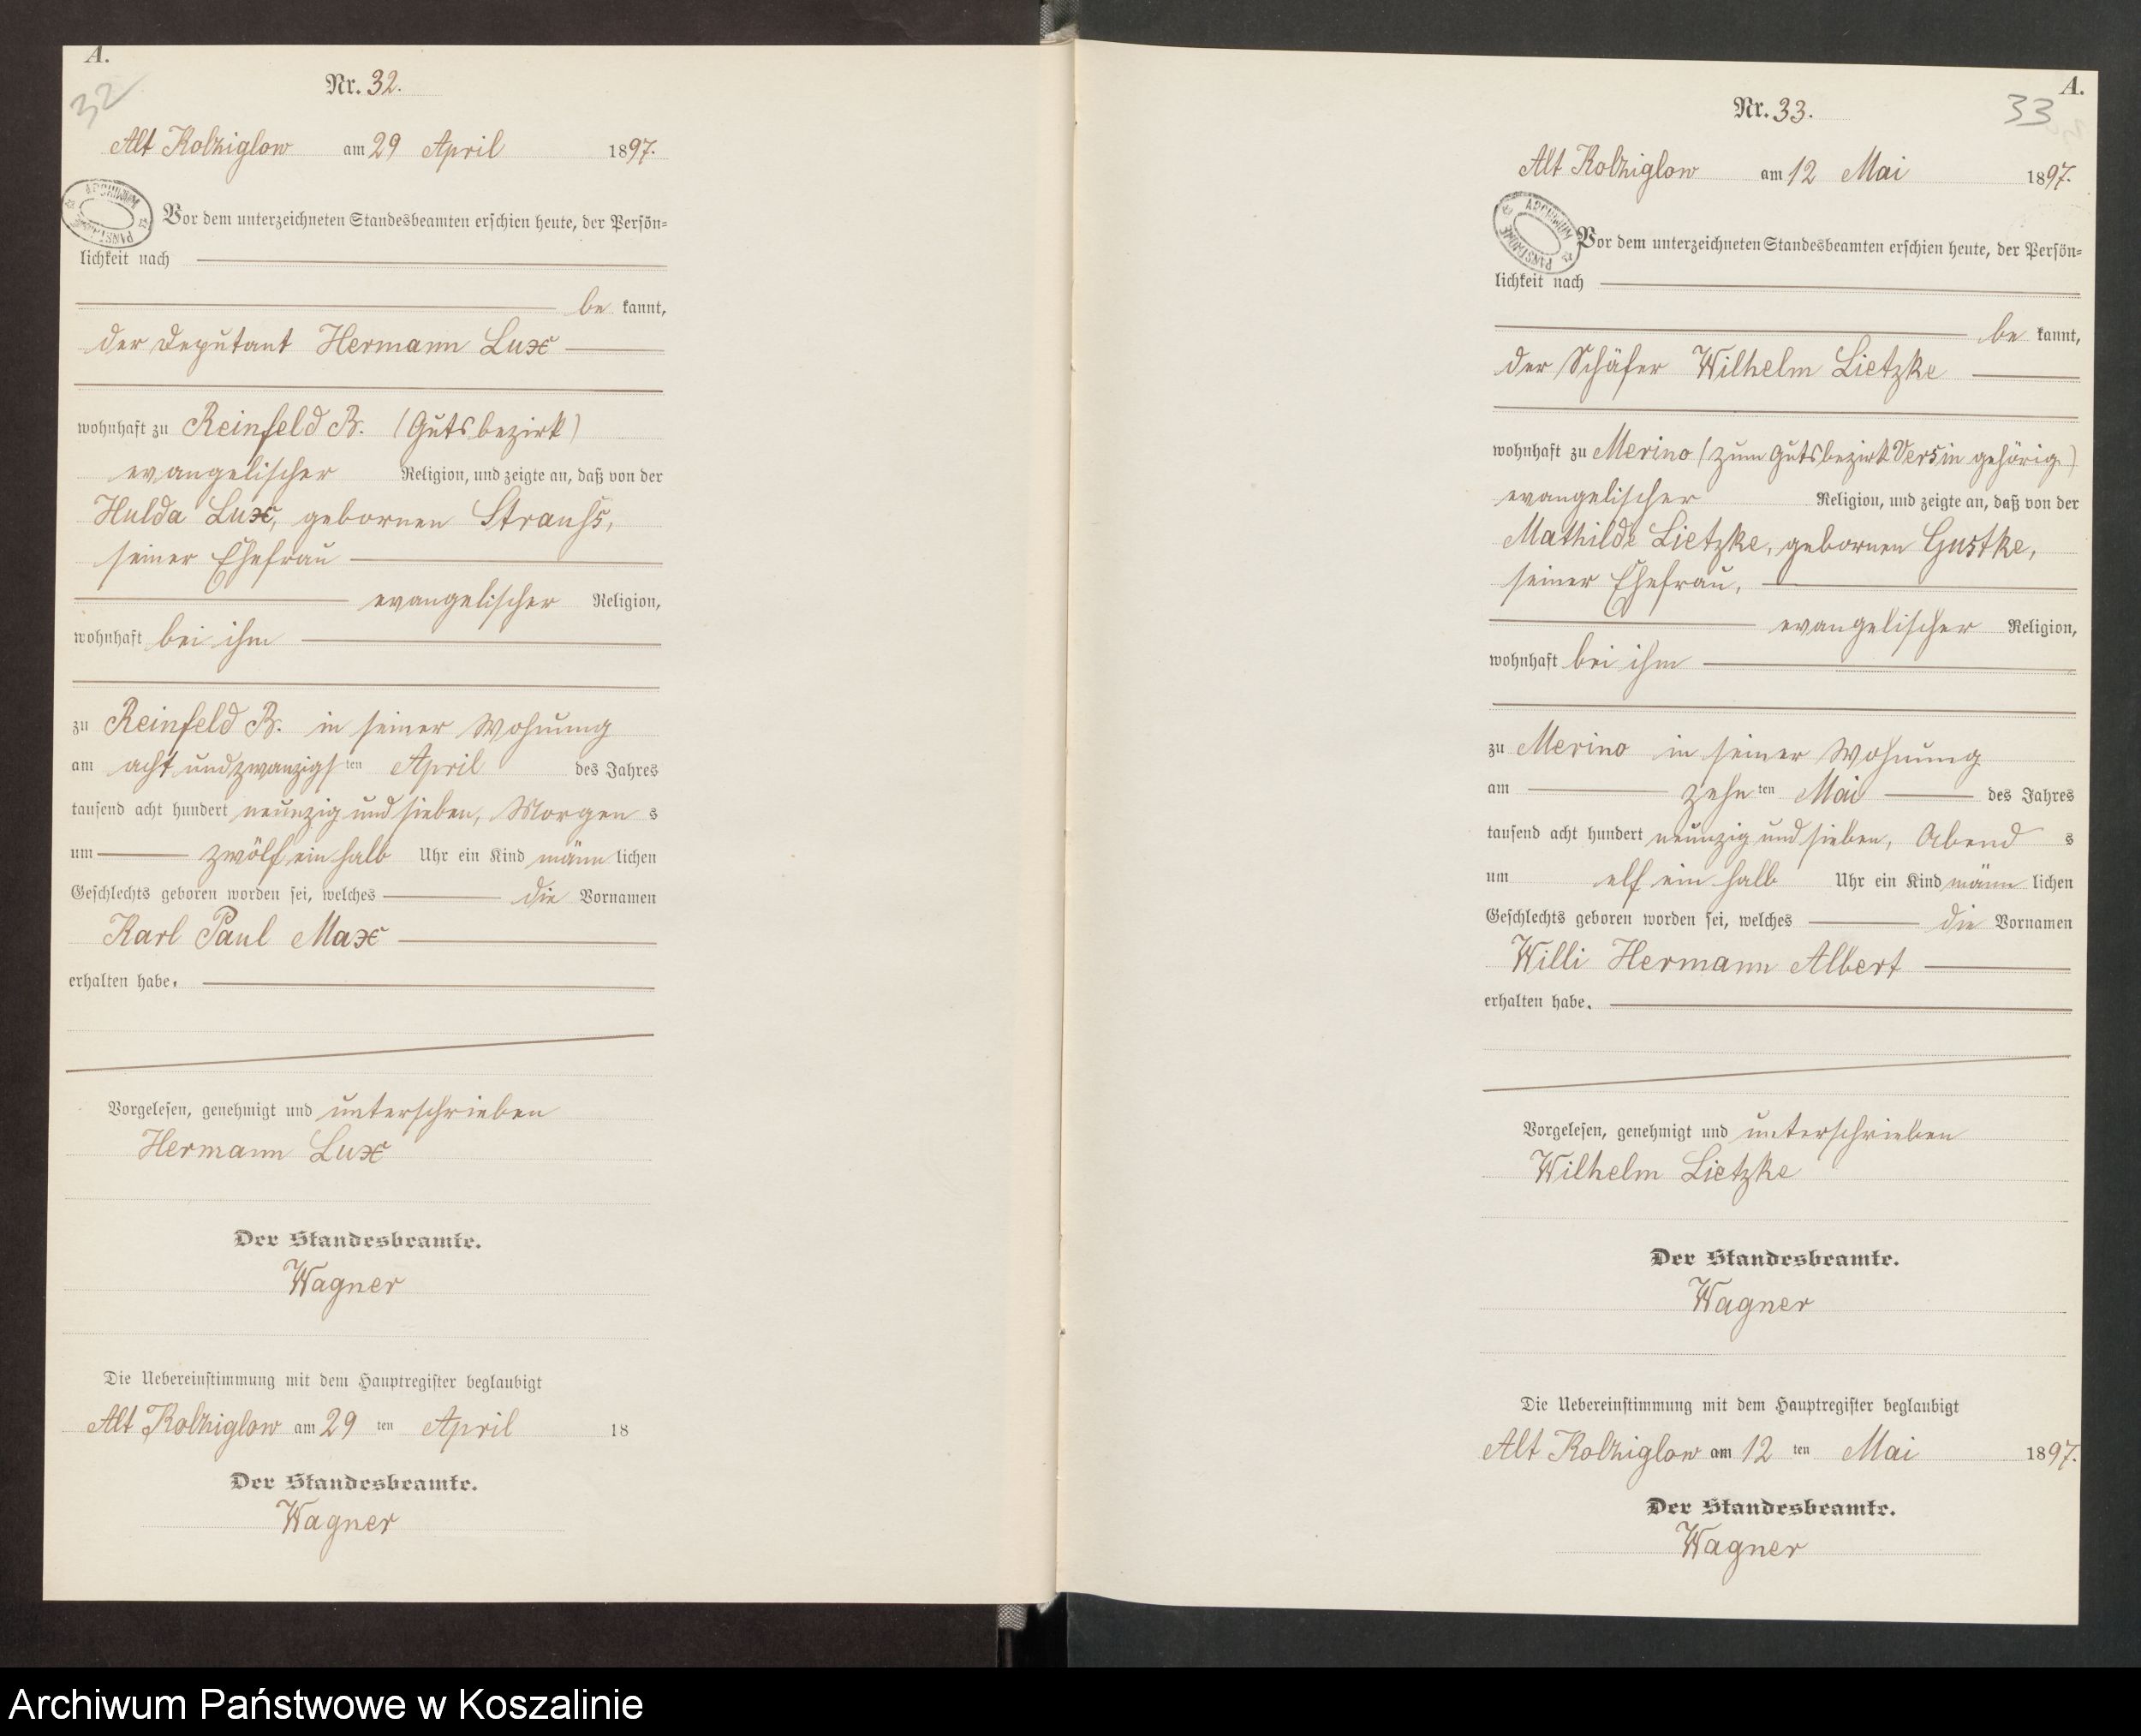 A.
32
Nr. 32.
Alt Kolziglow am 29 April 1897.
ARCHIWUM PAŃSTWOWE
Vor dem unterzeichneten Standesbeamten erschien heute, der Persön=
lichkeit nach
be kannt,
der Deputant Hermann Lux
wohnhaft zu Reinfeld B. (Gutsbezirk)
evangelischer Religion, und zeigte an, daß von der
Hulda Lux, gebornen Strauß,
seiner Ehefrau
evangelischer Religion,
wohnhaft bei ihm
zu Reinfeld B. in seiner Wohnung
am acht und zwanzigsten April des Jahres
tausend acht hundert neunzig und sieben, Morgens
um zwölf ein halb Uhr ein Kind männlichen
Geschlechts geboren worden sei, welches die Vornamen
Karl Paul Max
erhalten habe.
Vorgelesen, genehmigt und unterschrieben
Hermann Lux
Der Standesbeamte.
Wagner
Die Uebereinstimmung mit dem Hauptregister beglaubigt
Alt Kolziglow am 29 ten April 18
Der Standesbeamte.
Wagner
A.
33
Nr. 33.
Alt Kolziglow am 12 Mai 1897.
ARCHIWUM PAŃSTWOWE
Vor dem unterzeichneten Standesbeamten erschien heute, der Persön=
lichkeit nach
be kannt,
der Schäfer Wilhelm Lietzke
wohnhaft zu Merino (zum Gutsbezirk Versin gehörig)
evangelischer Religion, und zeigte an, daß von der
Mathilde Lietzke, gebornen Gustke,
seiner Ehefrau,
evangelischer Religion,
wohnhaft bei ihm
zu Merino in seiner Wohnung
am zehnten Mai des Jahres
tausend acht hundert neunzig und sieben, Abends
um elf ein halb Uhr ein Kind männlichen
Geschlechts geboren worden sei, welches die Vornamen
Willi Hermann Albert
erhalten habe.
Vorgelesen, genehmigt und unterschrieben
Wilhelm Lietzke
Der Standesbeamte.
Wagner
Die Uebereinstimmung mit dem Hauptregister beglaubigt
Alt Kolziglow am 12 ten Mai 1897.
Der Standesbeamte.
Wagner
Archiwum Państwowe w Koszalinie